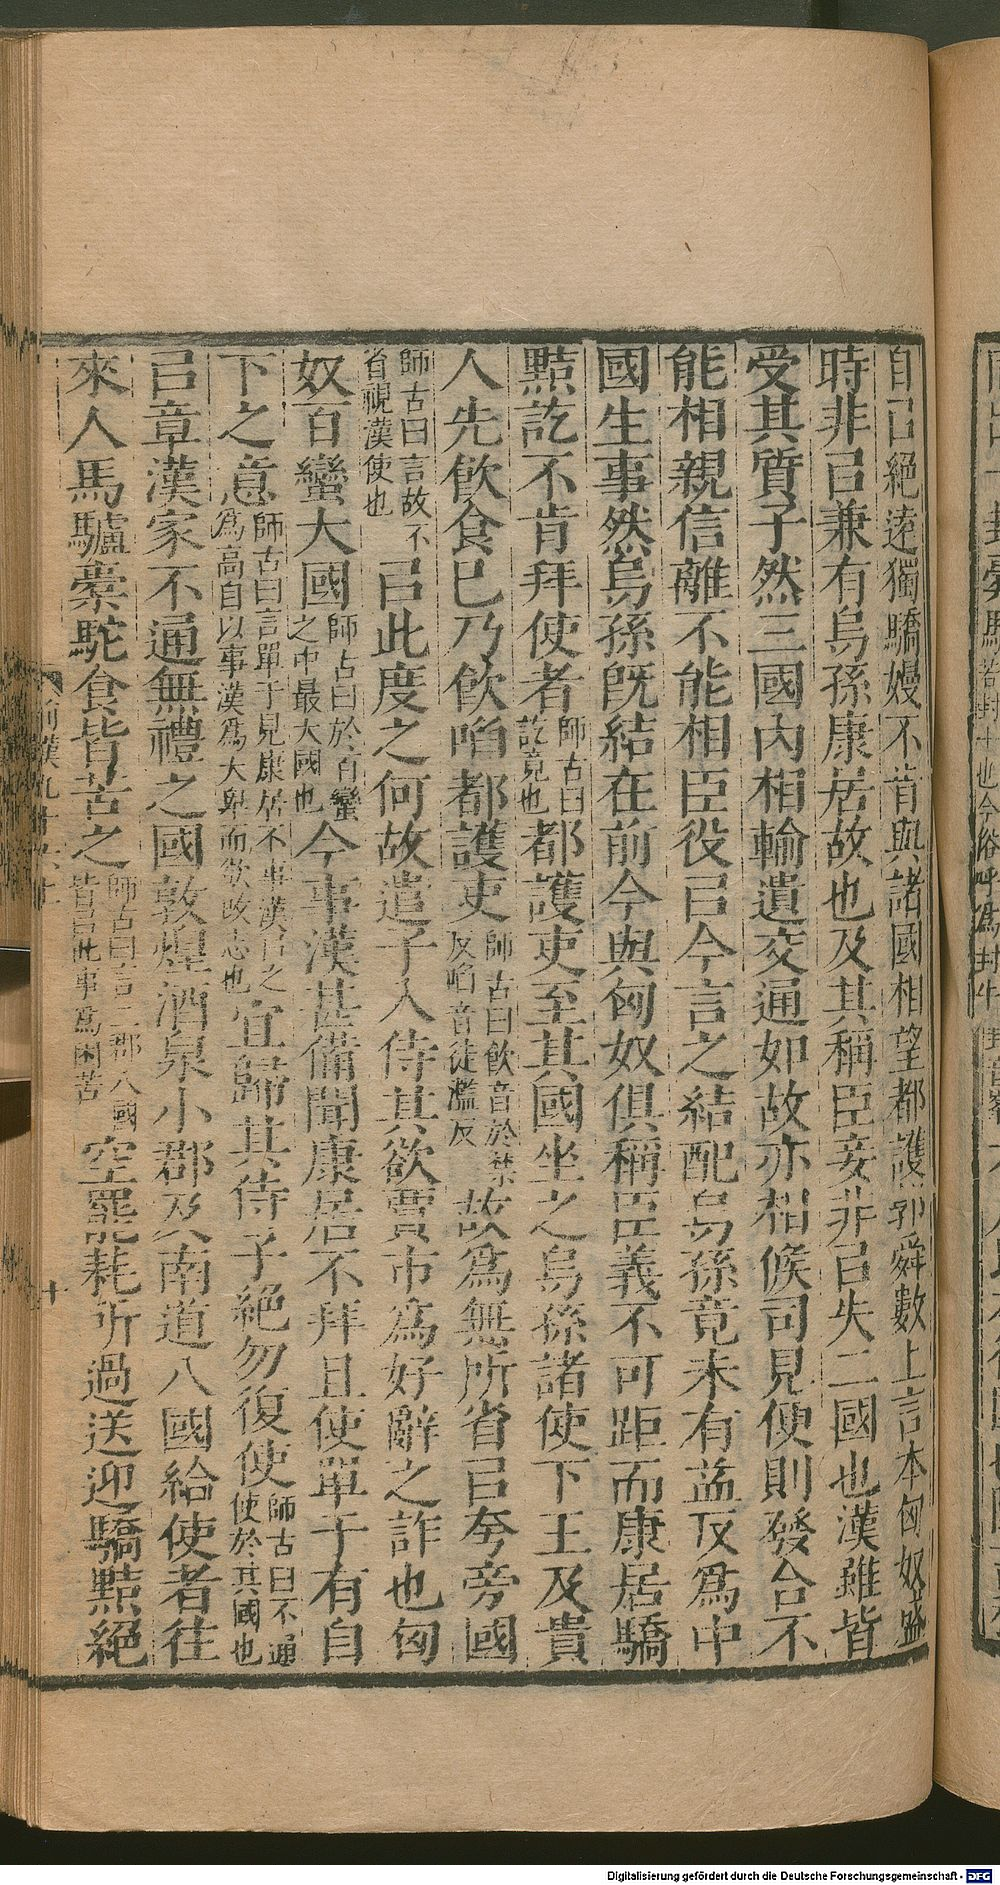 自㠯絕遠獨驕嫚不肯與諸國相望都護郭舜數上言本匈奴盛
時非㠯兼有烏孫康居故也及其稱臣妾非㠯失二國也漢雖皆
受其質子然三國內相輸遺交通如故亦相候司見便則發合不
能相親信離不能相臣役㠯今言之結配烏孫竟未有益反爲中
國生事然烏孫既結在前今與匈奴俱稱臣義不可距而康居驕
黠訖不肯拜使者師古曰訖竟也都護吏至其國坐之烏孫諸使下王及貴
人先飲食已乃飲啗都護吏師古曰飲音於禁反啗音徒濫反故爲無所省㠯夸旁國
師古曰言故不省視漢使也㠯此度之何故遣子入侍其欲賈市爲好辭之詐也匈
奴百蠻大國師古曰於百蠻之中最大國也今事漢甚備聞康居不拜且使單于有自
下之意師古曰言單于見康居不事漢㠯之爲高自以事漢爲太卑而欲改志也宜歸其侍子絕勿復使師古曰不通使於其國也
㠯章漢家不通無禮之國敦煌酒泉小郡及南道八國給使者往
來人馬驢橐駝食皆苦之師古曰言二郡八國皆㠯此事爲困苦空罷耗所過送迎驕黠絕
前漢九十六上
十
Digitalisierung gefördert durch die Deutsche Forschungsgemeinschaft - DFG